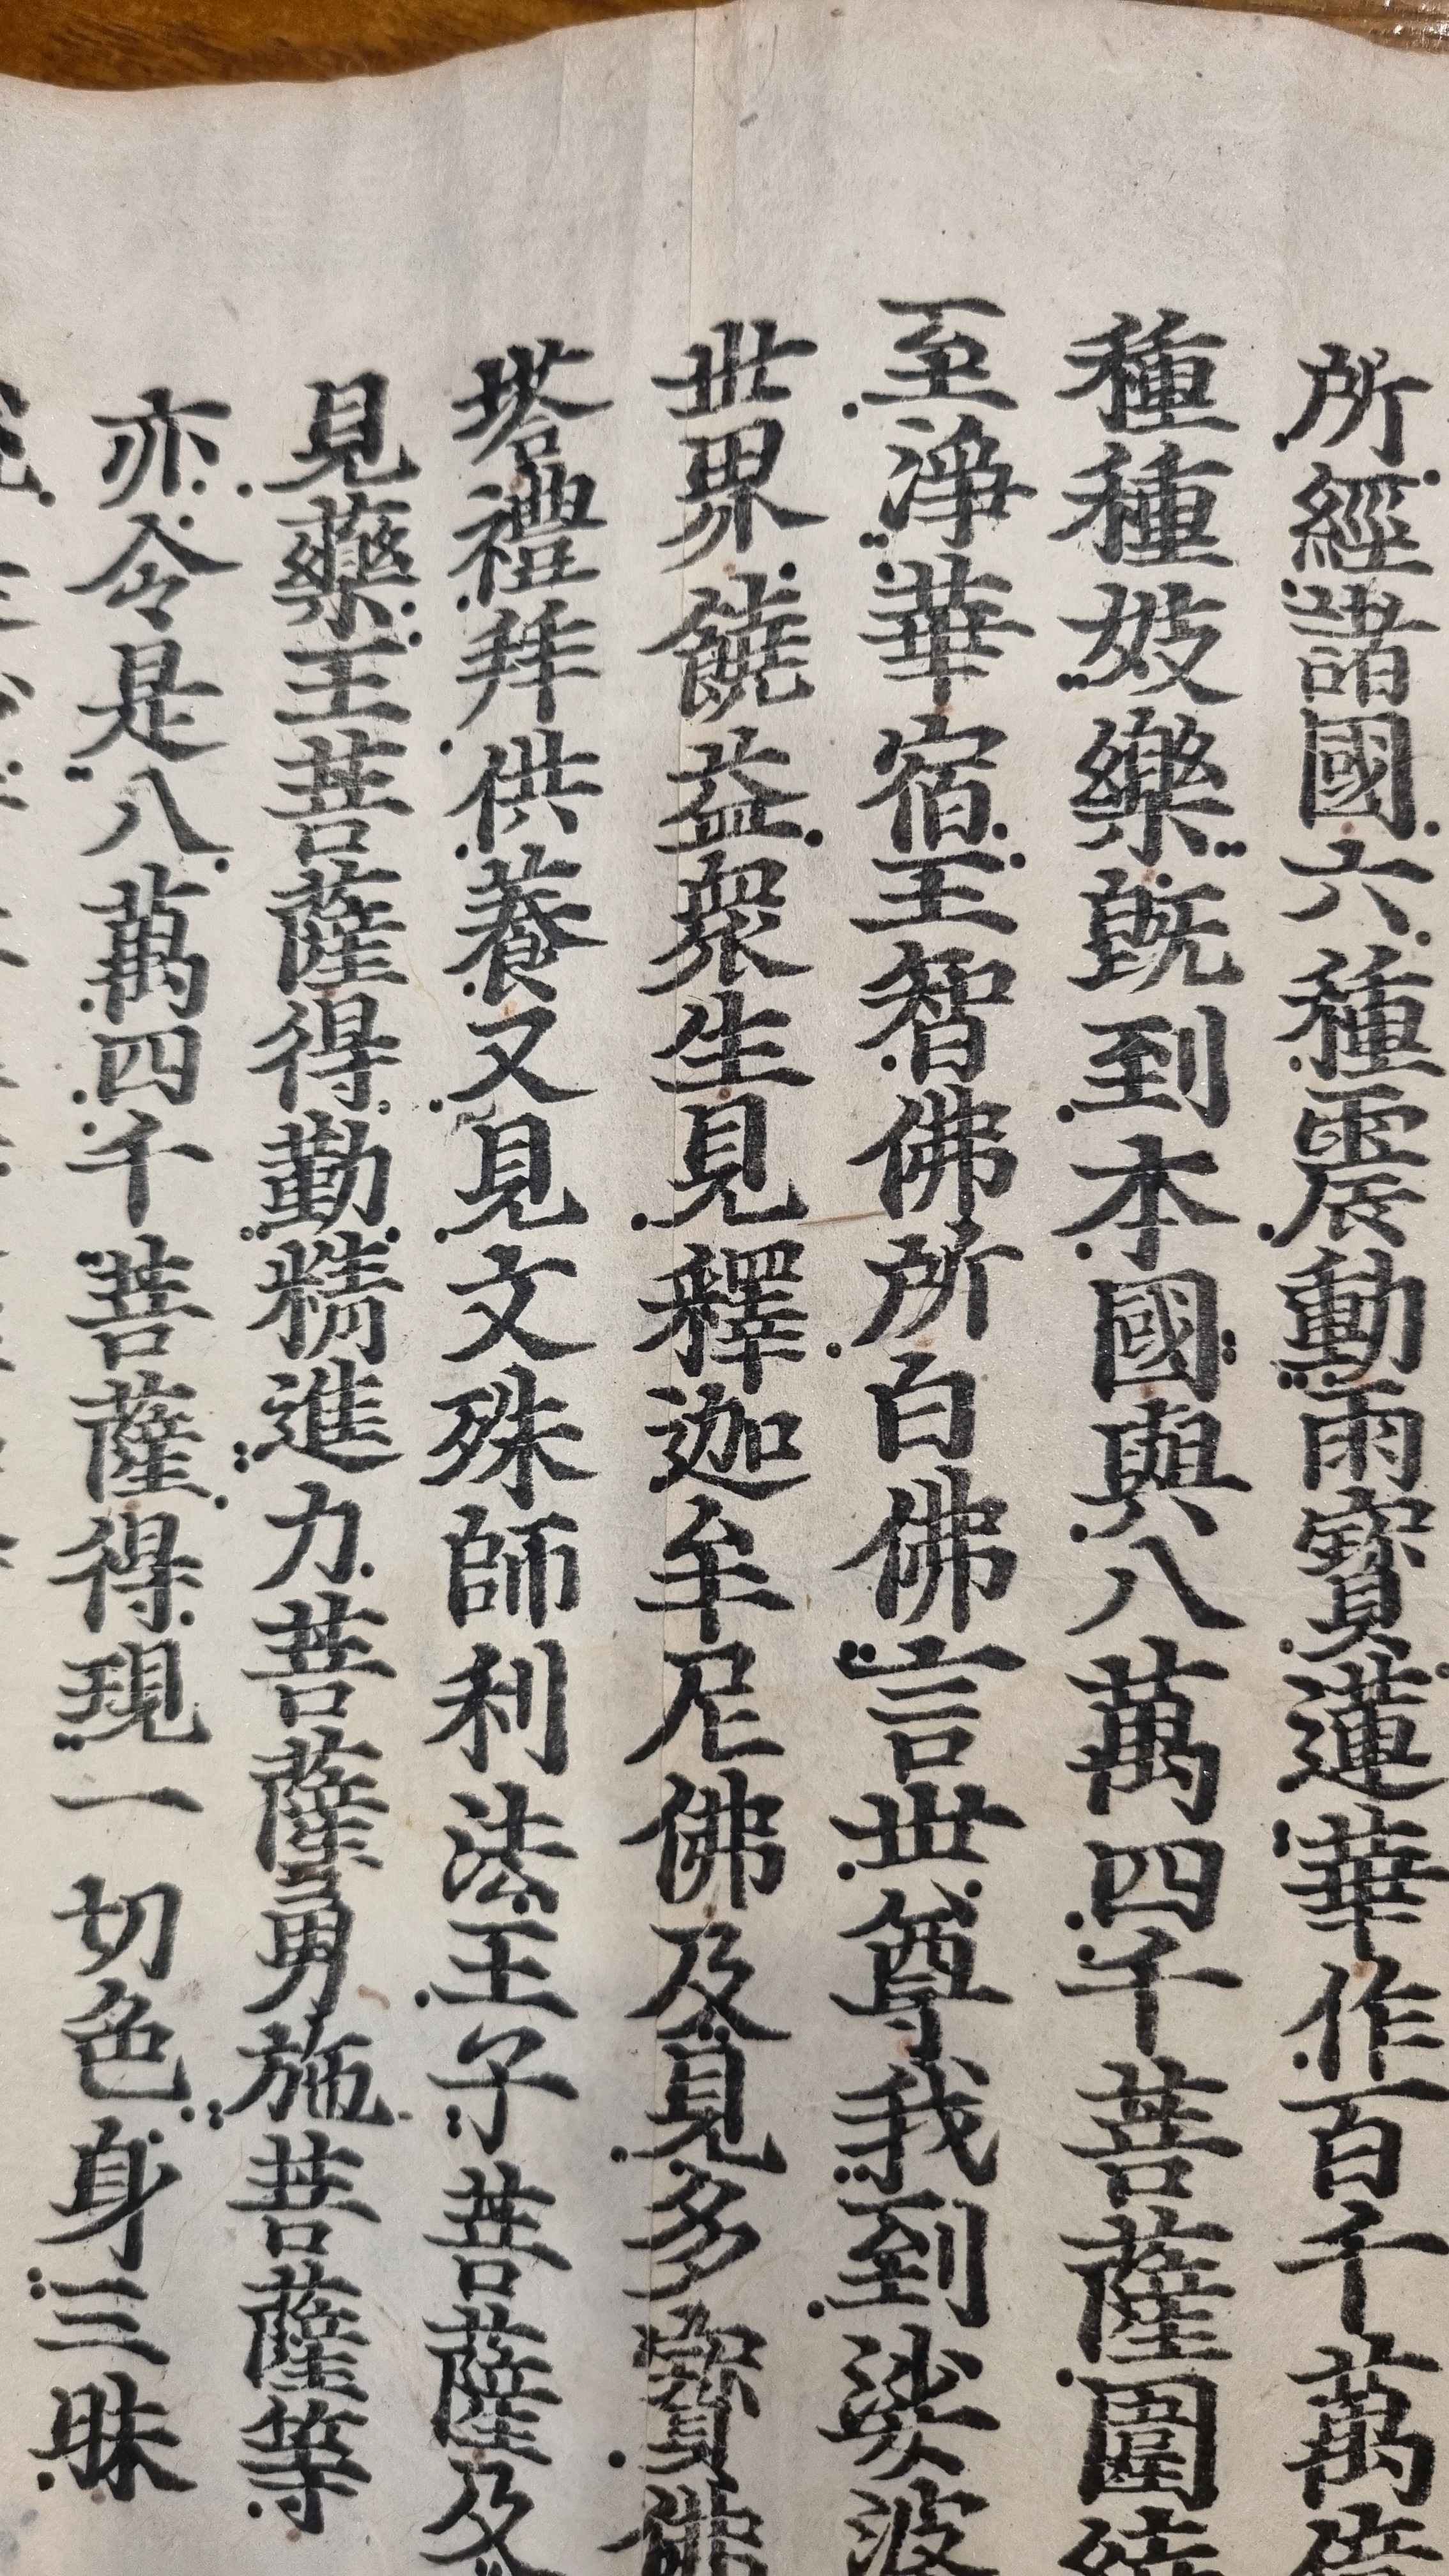 所經諸國六種震動雨寶蓮華作百千萬億
種種妓樂既到本國與八萬四千菩薩圍繞
至淨華宿王智佛所白佛言世尊我到娑婆
世界饒益衆生見釋迦牟尼佛及見多寶佛
塔禮拜供養又見文殊師利法王子菩薩及
見藥王菩薩得勤精進力菩薩勇施菩薩等
亦令是八萬四千菩薩得現一切色身三昧